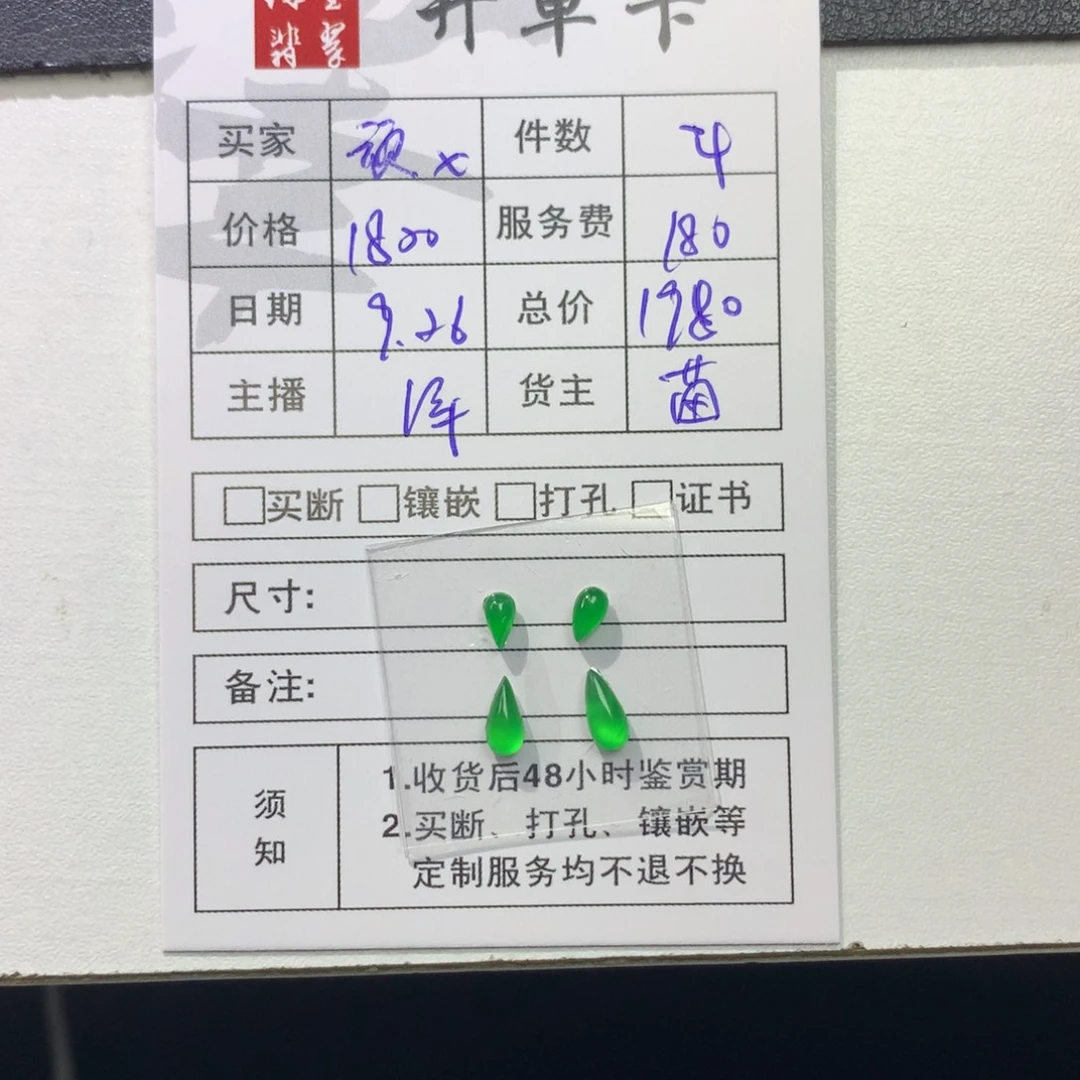 翡翠
开单卡
买家 件数 4
价格 1800 服务费 180
日期 9.26 总价 1980
主播 泽 货主 苗
买断 镶嵌 打孔 证书
尺寸:
备注:
须知
1.收货后48小时鉴赏期
2.买断、打孔、镶嵌等
定制服务均不退不换